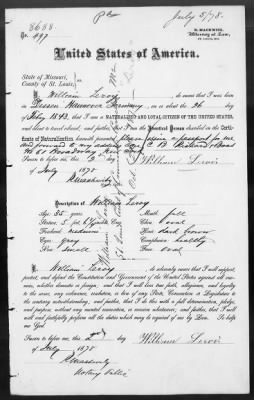 8688
No. 497
July 5/78.
R. MACKWITZ,
Attorney at Law,
ST. LOUIS, MO.
United States of America.
State of Missouri,
County of St. Louis,
I, William Leroy, do swear that I was born
in Hannover Germany on or about the 26 day
of 1843, that I am a NATURALIZED AND LOYAL CITIZEN OF THE UNITED STATES,
and about to travel abroad; and further, that I am the Identical Person described in the Certificate
of Naturalization, herewith presented. Please a passport for me
and forward to my address care
No 61 Broadway New York
Sworn to before me, this 2 day William Leroy
of July 1878
Description of William Leroy
Age: 35 years. Mouth: full
Stature: 5 feet inches Chin: oval
Forehead: medium Hair: dark brown
Eyes: gray Complexion: healthy
Nose: small Face: oval
I, William Leroy, do solemnly swear that I will support,
protect, and defend the Constitution and Government of the United States against all enemies,
whether domestic or foreign, and that I will bear true faith, allegiance, and loyalty
to the same, any ordinance, resolution, or law of any State, Convention or Legislature to
the contrary notwithstanding, and further, that I do this with a full determination, pledge,
and purpose, without any mental reservation or evasion whatsoever, and further, that I will
well and faithfully perform all the duties which may be required of me by law. So help
me God.
Sworn to before me, this 2nd day William Leroy
of July 1878
Notary Public